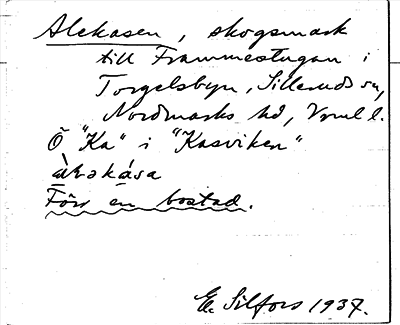 Alekasen, skogsmark
till Frammestugan i
Torgelsbyn, Silleruds sn,
Nordmarks hd, Vrml l.
Ö "Ka" i "Kasviken"
àləkása
Förr en bostad.
E. Silfors 1937.